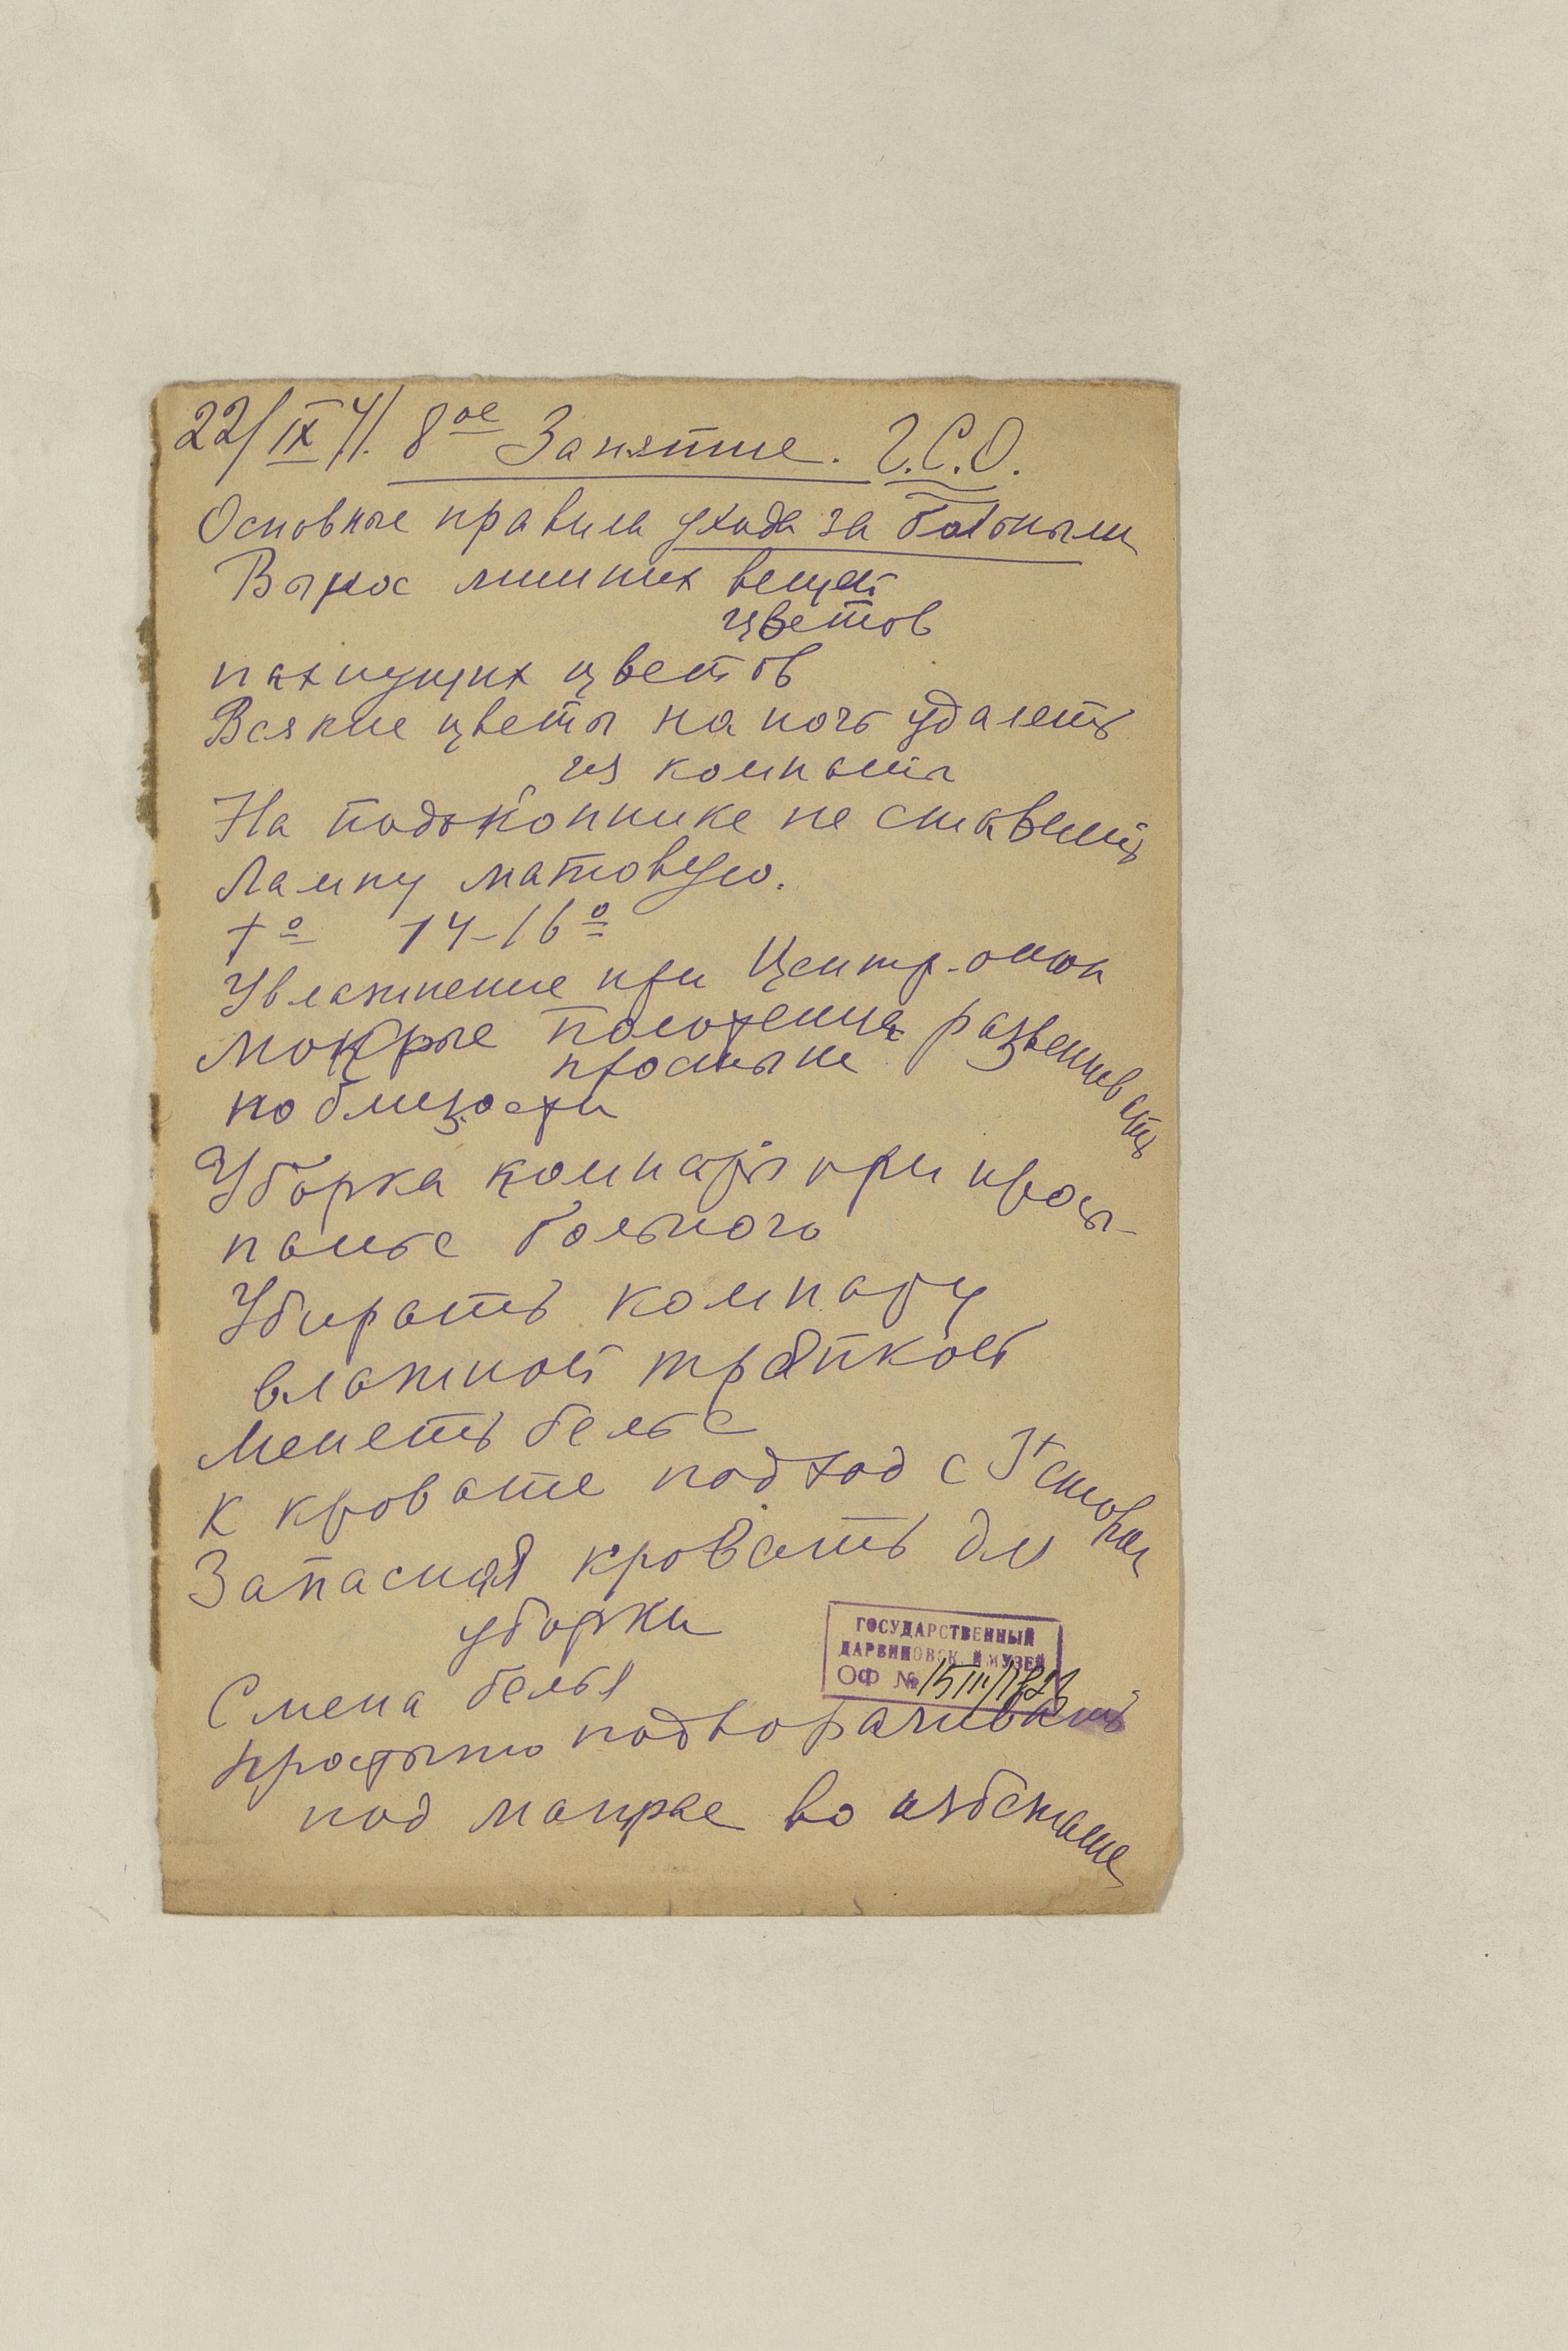 22/IX 41. 8ое Занятие. Г.С.О.
Основные правила ухода за больными
Вынос лишних вещей
цветов
пахнущих цветов
Всякие цветы на ночь удалять
из комнаты
На подоконнике не ставить
Лампу матовую.
to 14-16o
Увлажнение при Центр. отоп
мокрые полотенца развешивать
простыни
по близости
Уборка комнаты при просы-
панье больного
Убирать комнату
влажной тряпкой
Менять белье
К кровате подход с 3х сторон
Запасная кровать для
уборки
ГОСУДАРСТВЕННЫЙ
ДАРВИНОВСКИЙ МУЗЕЙ
ОФ №
Смена белья
простыню подворачивать
под матрас во избежание